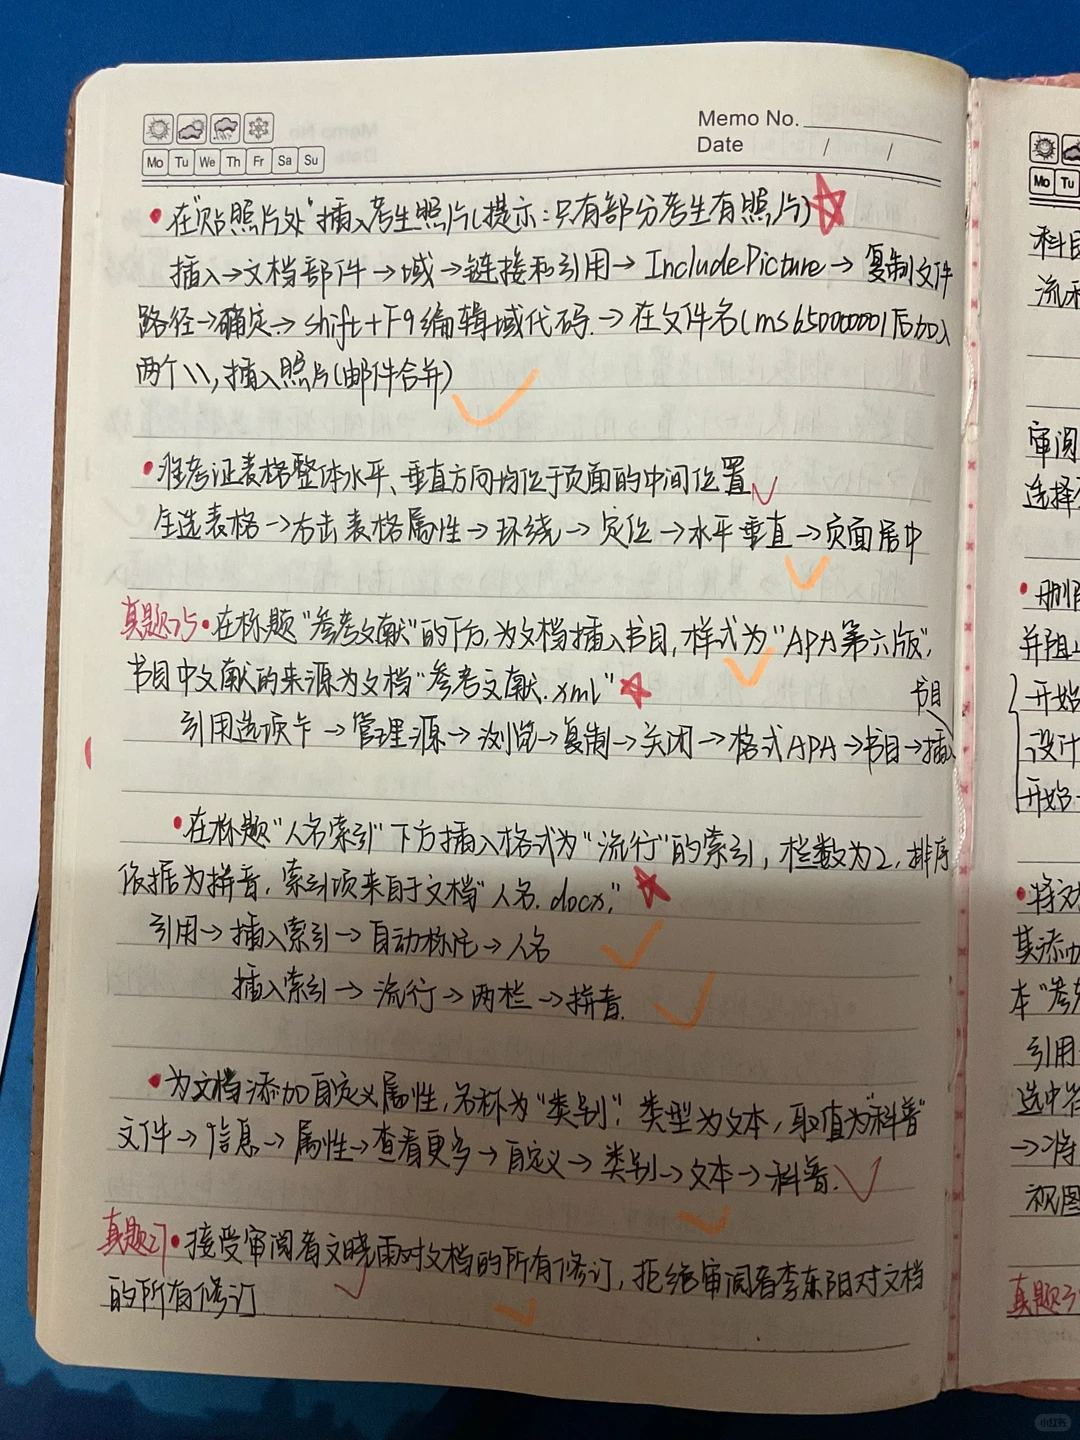 Memo No.
Date / /
Mo Tu We Th Fr Sa Su
•在"贴照片处"插入考生照片(提示:只有部分考生有照片)
插入→文档部件→域→链接和引用→IncludePicture→复制文件
路径→确定→shift+F9编辑域代码.→在文件名(ms65000001后加入
两个\\,插入照片(邮件合并)
•准考证表格整体水平、垂直方向均位于页面的中间位置
全选表格→右击表格属性→环绕→定位→水平垂直→页面居中
真题25•在标题"参考文献"的下方,为文档插入书目,样式为"APA第六版",
书目中文献的来源为文档"参考文献.xml"
书目
引用选项卡→管理源→浏览→复制→关闭→格式APA→书目→插入
•在标题"人名索引"下方插入格式为"流行"的索引,栏数为2,排序
依据为拼音,索引项来自于文档"人名.docx;"
引用→插入索引→自动标记→人名
插入索引→流行→两栏→拼音.
•为文档添加自定义属性,名称为"类别",类型为文本,取值为"科普"
文件→信息→属性→查看更多→自定义→类别→文本→科普.
真题27•接受审阅者文晓雨对文档的所有修订,拒绝审阅者李东阳对文档
的所有修订
Mo Tu
科目
审阅
选择
•删除
开始
设计
开始
•将文
其添加
引用
选中
→将
视图
真题3
小红书